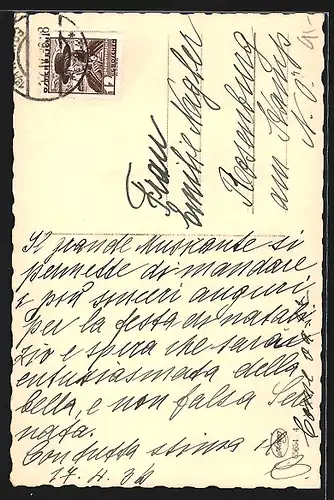 Frau
Emilie Nagler
Rosenburg
am Kamp
N. Ö.
Il grande Musikante si
permette di mandare
i più sinceri auguri
per la festa di natali
zio e spera che sarai
entusiasmata della
bella, e non falsa Se
nata.
Con tutta stima il
17. 4. 36